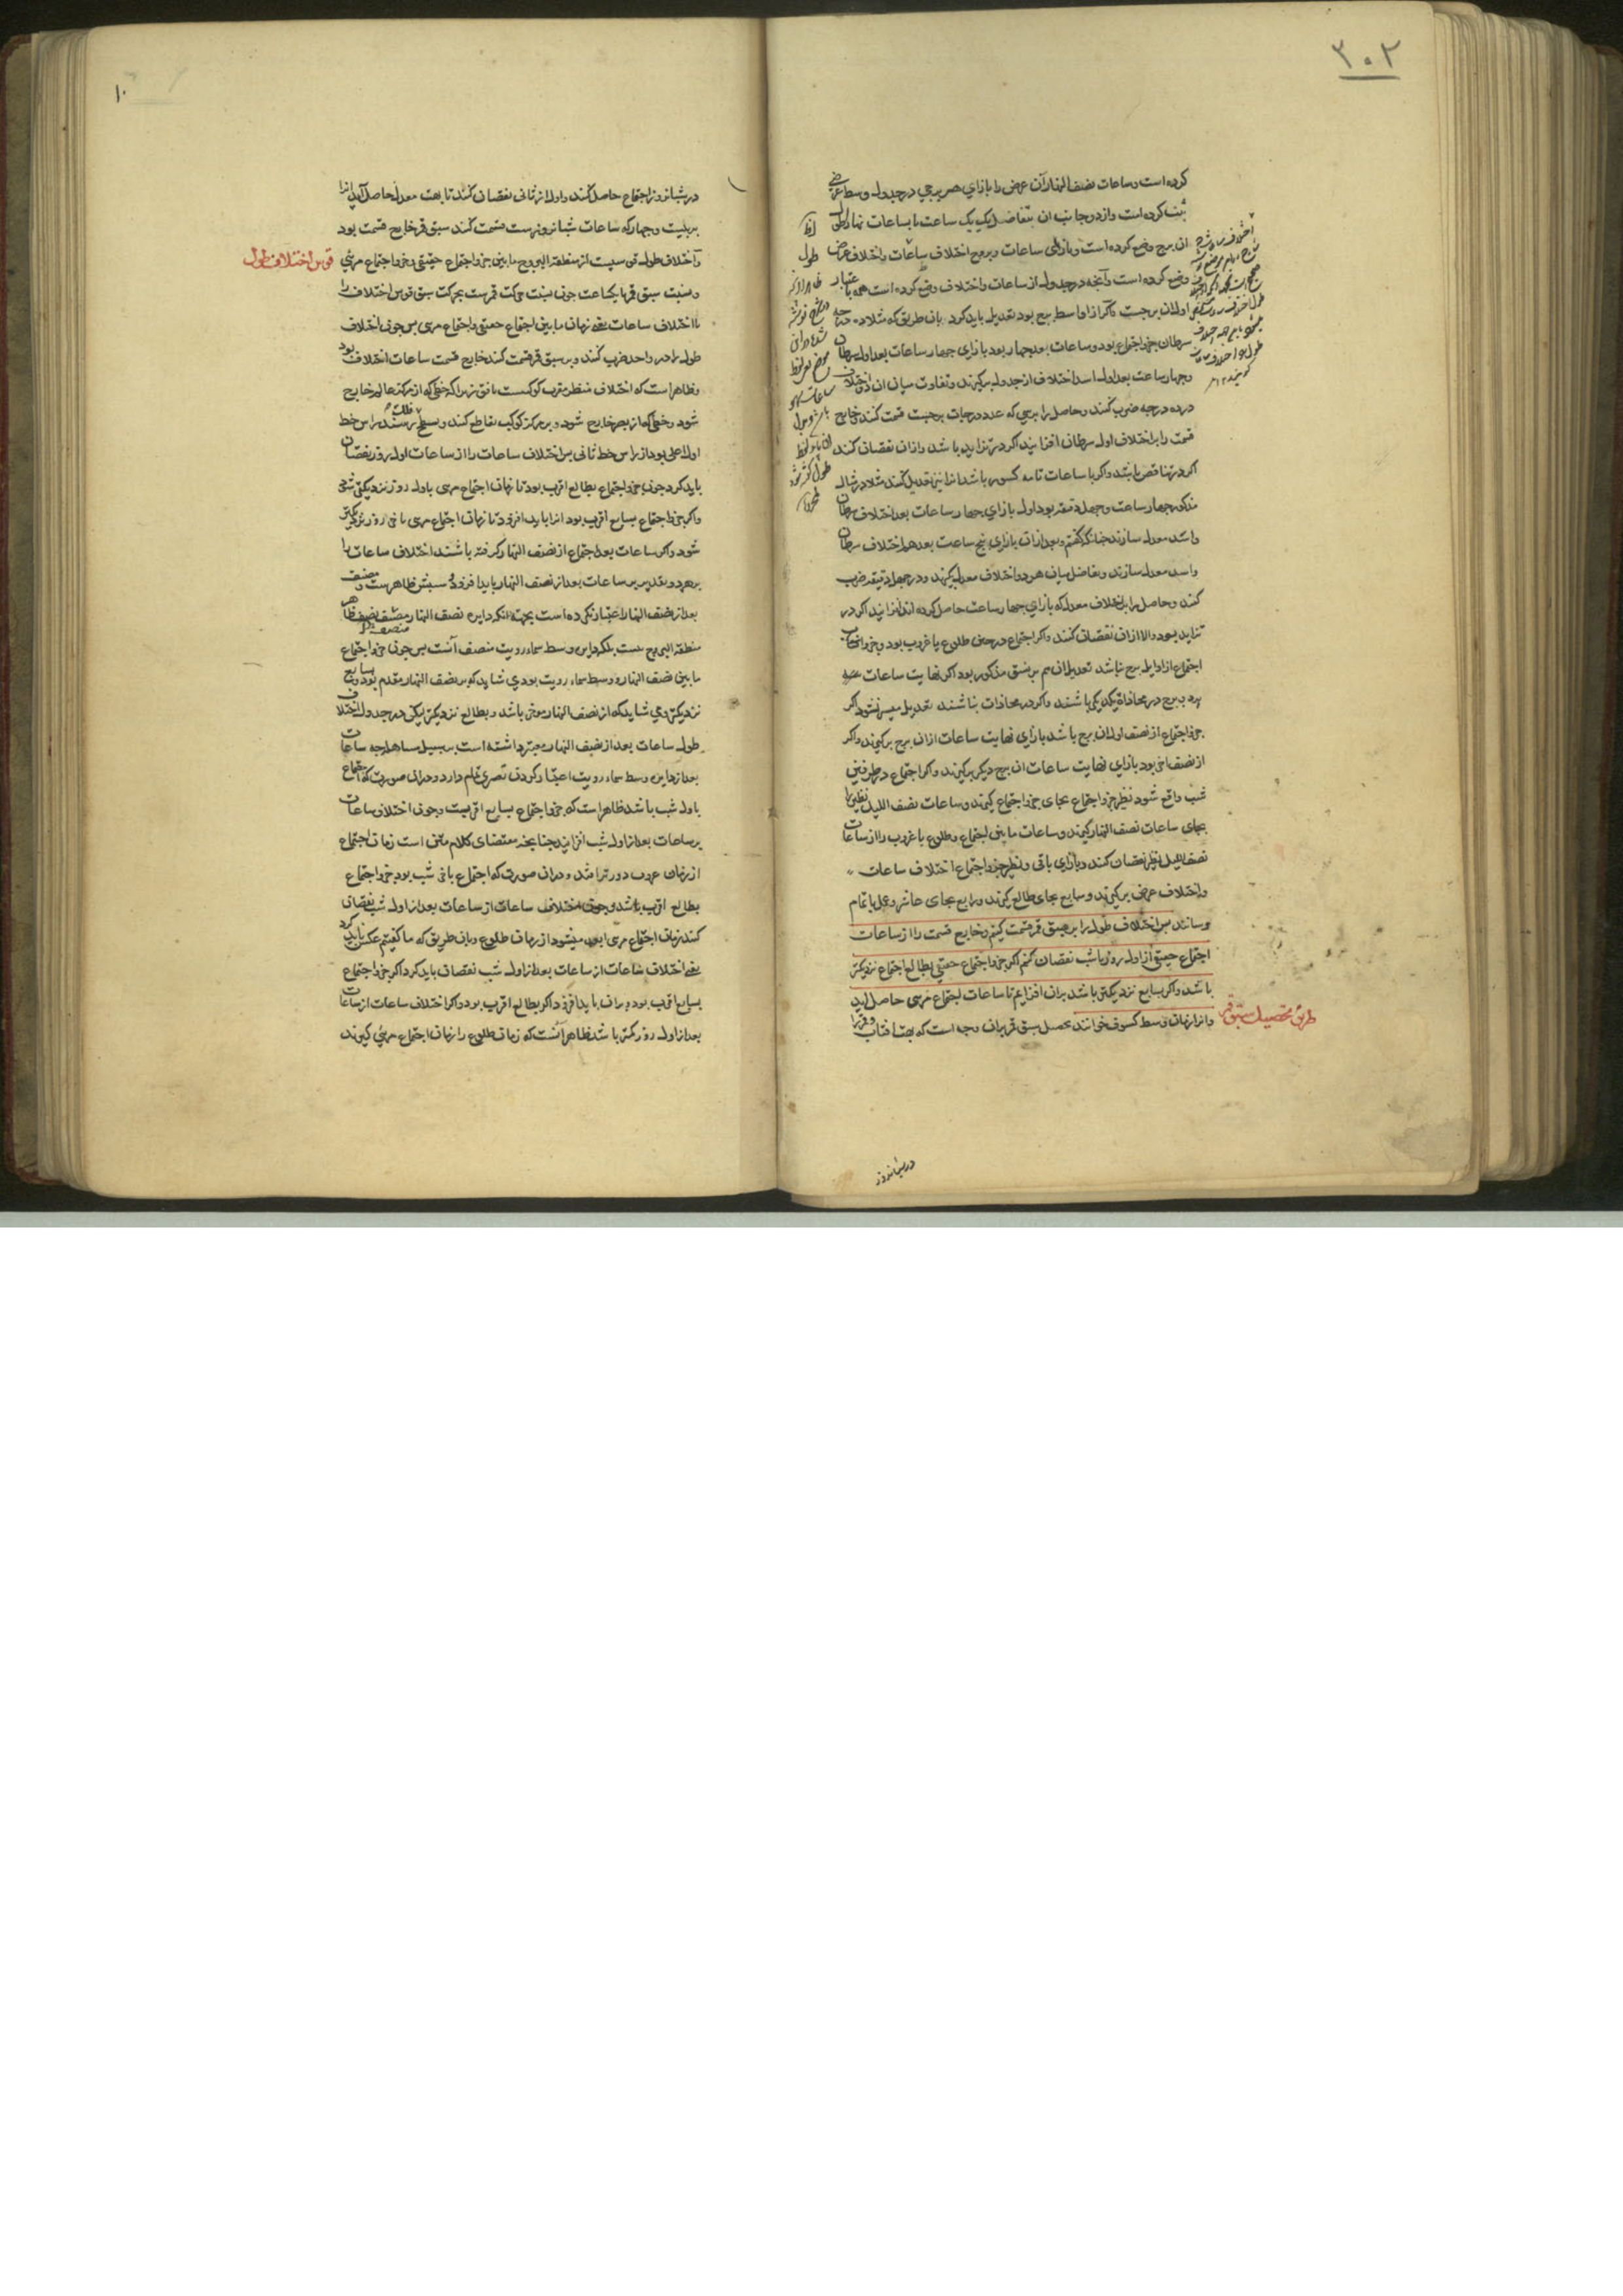 ۳۰۲
کرده است و ساعات نصف النهار آن عرض را بازای هر برجی در جدول وسط عرضی
ثبت کرده است و از دو جانب آن بتفاضل یک یک ساعت تا بساعات نهار اطول
آن برج وضع کرده است و بازای ساعات و بروج اختلاف ساعات و اختلاف عرض
وضع کرده است و آنچه در جدول از ساعات و اختلاف وضع کرده است همه باعتبار
اول آن برجست و اگر از اواسط برج بود تعدیل باید کرد بآن طریق که مثلا ده درجه
سرطان جزو اجتماع بود و ساعات بعد چهار بود بازای چهار ساعات بعد اول سرطان
و چهار ساعت بعد اول اسد اختلاف از جدول برگیرند و تفاوت میان آن دو اختلاف
در ده درجه ضرب کنند و حاصل را بر سی که عدد درجات برجست قسمت کنند و خارج
قسمت را بر اختلاف اول سرطان افزایند اگر در تزاید باشد و از آن نقصان کنند
اگر در تناقص باشد و اگر با ساعات تامه کسور باشد آنرا نیز تعدیل کنند مثلا در مثال
مذکور چهار ساعت و چهل دقیقه بود اول بازای چهار ساعات بعد اختلاف سرطان
و اسد معدل سازند چنانکه گفتم و بعد از آن بازای پنج ساعت بعد هم اختلاف سرطان
و اسد معدل سازند و تفاضل میان هر دو اختلاف معدل بگیرند و در چهل دقیقه ضرب
کنند و حاصل را بر اختلاف معدل که بازای چهار ساعت حاصل کرده اند افزایند اگر در
تزاید بود و الا از آن نقصان کنند و اگر اجتماع در حین طلوع یا غروب بود و جزو
اجتماع از اوایل برج نباشد تعدیل آن هم بر نسق مذکور بود اگر نهایت ساعات
دو برج در محاذاة یکدیگر باشند و اگر در محاذات نباشند تعدیل میسر نشود اگر
جزو اجتماع از نصف اول آن برج باشد بازای نهایت ساعات از آن برج برگیرند و اگر
از نصف اخیر بود بازای نهایت ساعات آن برج دیگر برگیرند و اگر اجتماع در طرفین
شب واقع شود نظیر جزو اجتماع بجای جزو اجتماع گیرند و ساعات نصف اللیل نظیر را
بجای ساعات نصف النهار گیرند و ساعات ما بین اجتماع و طلوع یا غروب را از ساعات
نصف اللیل نظیر نقصان کنند و بازای باقی و نظیر جزو اجتماع اختلاف ساعات
و اختلاف عرض برگیرند و سابع بجای طالع گیرند و رابع بجای عاشر و عمل باتمام
رسانند پس اختلاف طول را بر سبق قمر قسمت کنیم و خارج قسمت را از ساعات
اجتماع حقیقی از اول روز یا شب نقصان کنم اگر جزو اجتماع حقیقی بطالع اجتماع نزدیکتر
باشد و اگر بسابع نزدیکتر باشد بر آن افزایم تا ساعات اجتماع مرئی حاصل آید
طریق تحصیل سبق قمر
و آنرا زمان وسط کسوف خوانند تحصیل سبق قمر بران وجه است که بهت آفتاب و قمر را
در شبانروز
۱۰
در شبانروز اجتماع حاصل کنند و اول از ثانی نقصان کنند تا بهت معدل حاصل آید آنرا
بر بیست و چهار که ساعات شبانروزیست قسمت کنند سبق قمر خارج قسمت بود
قوس اختلاف طول
و اختلاف طول قوسیست از منطقة البروج ما بین جزو اجتماع حقیقی و جزو اجتماع مرئی
و نسبت سبق قمر با یکساعت چون نسبت حرکت قمرست بحرکت سبق قوس اختلاف را
با اختلاف ساعات یعنی زمان ما بین اجتماع حقیقی و اجتماع مرئی پس چون اختلاف
طول را در واحد ضرب کنند و بر سبق قمر قسمت کنند خارج قسمت ساعات اختلاف بود
و ظاهر است که اختلاف منظر مقرب کوکبست بافق زیرا که خطی که از مرکز عالم خارج
شود و خطی که از بصر خارج شود و بر مرکز کوکب تقاطع کنند و بسطح فلک رسند راس خط
اول اعلی بود از راس خط ثانی پس اختلاف ساعات را از ساعات اول روز نقصان
باید کرد چون جزو اجتماع بطالع اقرب بود تا زمان اجتماع مرئی باول روز نزدیکتر شود
و اگر جزو اجتماع بسابع اقرب بود آنرا باید افزود تا زمان اجتماع مرئی باخر روز نزدیکتر
شود و اگر ساعات بعد اجتماع از نصف النهار گرفته باشند اختلاف ساعات را
بر هر دو تقدیر بر ساعات بعد از نصف النهار باید افزود و سببش ظاهرست و مصنف
بعد از نصف النهار اعتبار نکرده است بجهة آنکه دایره نصف النهار منصف نصف ظاهر
منطقة البروج نیست بلکه دایره وسط سماء رویت منصف آنست پس چون جزو اجتماع
ما بین نصف النهار و وسط سماء رویت بود می شاید که بر نصف النهار مقدم بود و بسابع
نزدیکتر و می شاید که از نصف النهار مؤخر باشد و بطالع نزدیکتر لیکن در جدول اختلاف
طول ساعات بعد از نصف النهار معتبر داشته است بر سبیل مساهله چه ساعات
بعد از دایره وسط سماء رویت اعتبار کردن تعسری تمام دارد و در آن صورت که اجتماع
باول شب باشد ظاهر است که جزو اجتماع بسابع اقربست و چون اختلاف ساعات
بر ساعات بعد از اول شب افزایند چنانچه مقتضای کلام متن است زمان اجتماع
از زمان غروب دورتر افتد و در آن صورت که اجتماع باخر شب بود جزو اجتماع
بطالع اقرب باشد و چون اختلاف ساعات از ساعات بعد از اول شب نقصان
کنند زمان اجتماع مرئی ابعد میشود از زمان طلوع و بآن طریق که ما گفتیم عکس باید کرد
یعنی اختلاف ساعات از ساعات بعد از اول شب نقصان باید کرد اگر جزو اجتماع
بسابع اقرب بود و بر آن باید افزود اگر بطالع اقرب بود و اگر اختلاف ساعات از ساعات
بعد از اول روز کمتر باشد ظاهر آنست که زمان طلوع را زمان اجتماع مرئی گیرند